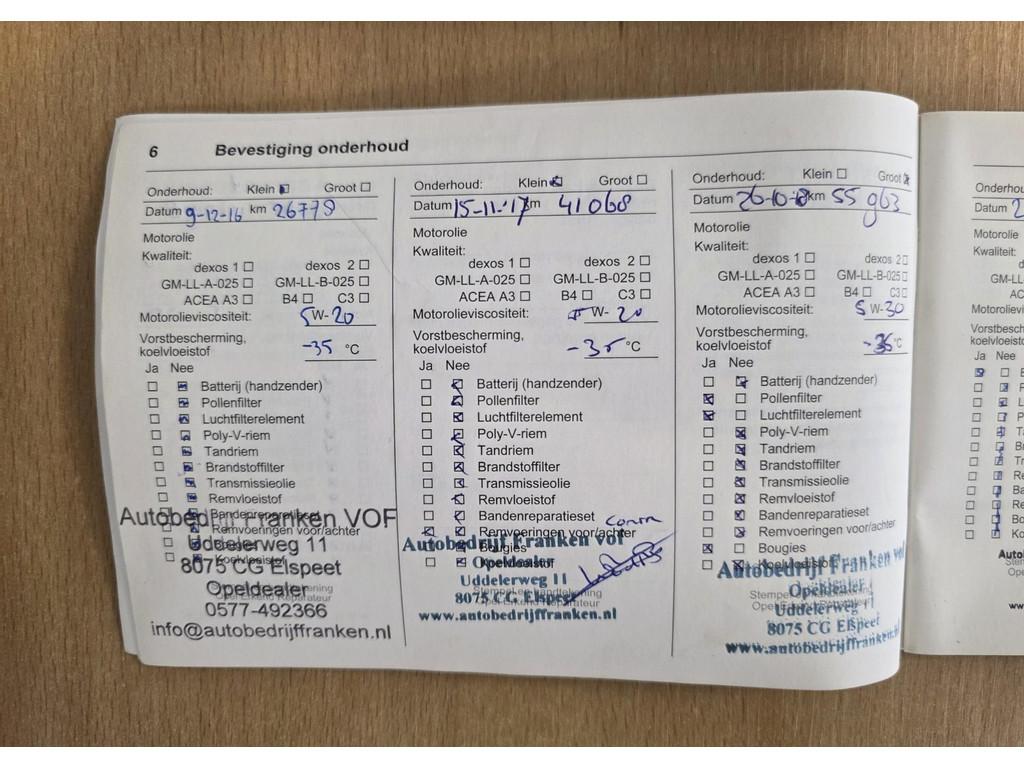 6 Bevestiging onderhoud
Onderhoud: Klein Groot
Datum 9-12-16 km 26779
Motorolie
Kwaliteit:
dexos 1 dexos 2
GM-LL-A-025 GM-LL-B-025
ACEA A3 B4 C3
Motorolieviscositeit: 5W-20
Vorstbescherming,
koelvloeistof -35 °C
Ja Nee
Batterij (handzender)
Pollenfilter
Luchtfilterelement
Poly-V-riem
Tandriem
Brandstoffilter
Transmissieolie
Remvloeistof
Bandenreparatieset
Remvoeringen voor/achter
Koelvloeistof
Autobedrijf Franken VOF
Uddelerweg 11
8075 CG Elspeet
Opeldealer
0577-492366
info@autobedrijffranken.nl
Onderhoud: Klein Groot
Datum 15-11-'17 km 41068
Motorolie
Kwaliteit:
dexos 1 dexos 2
GM-LL-A-025 GM-LL-B-025
ACEA A3 B4 C3
Motorolieviscositeit: 5W-20
Vorstbescherming,
koelvloeistof -35 °C
Ja Nee
Batterij (handzender)
Pollenfilter
Luchtfilterelement
Poly-V-riem
Tandriem
Brandstoffilter
Transmissieolie
Remvloeistof
Bandenreparatieset
Remvoeringen voor/achter
Bougies
Autobedrijf Franken vof
Opeldealer
Uddelerweg 11
8075 CG Elspeet
www.autobedrijffranken.nl
Onderhoud: Klein Groot
Datum 26-10-18 km 55963
Motorolie
Kwaliteit:
dexos 1 dexos 2
GM-LL-A-025 GM-LL-B-025
ACEA A3 B4 C3
Motorolieviscositeit: 5W-30
Vorstbescherming,
koelvloeistof °C
Ja Nee
Batterij (handzender)
Pollenfilter
Luchtfilterelement
Poly-V-riem
Tandriem
Brandstoffilter
Transmissieolie
Remvloeistof
Bandenreparatieset
Remvoeringen voor/achter
Bougies
Koelvloeistof
Autobedrijf Franken vof
Opeldealer
Uddelerweg 11
8075 CG Elspeet
www.autobedrijffranken.nl
Datum 2
Motorolie
Kwaliteit:
Ja Nee